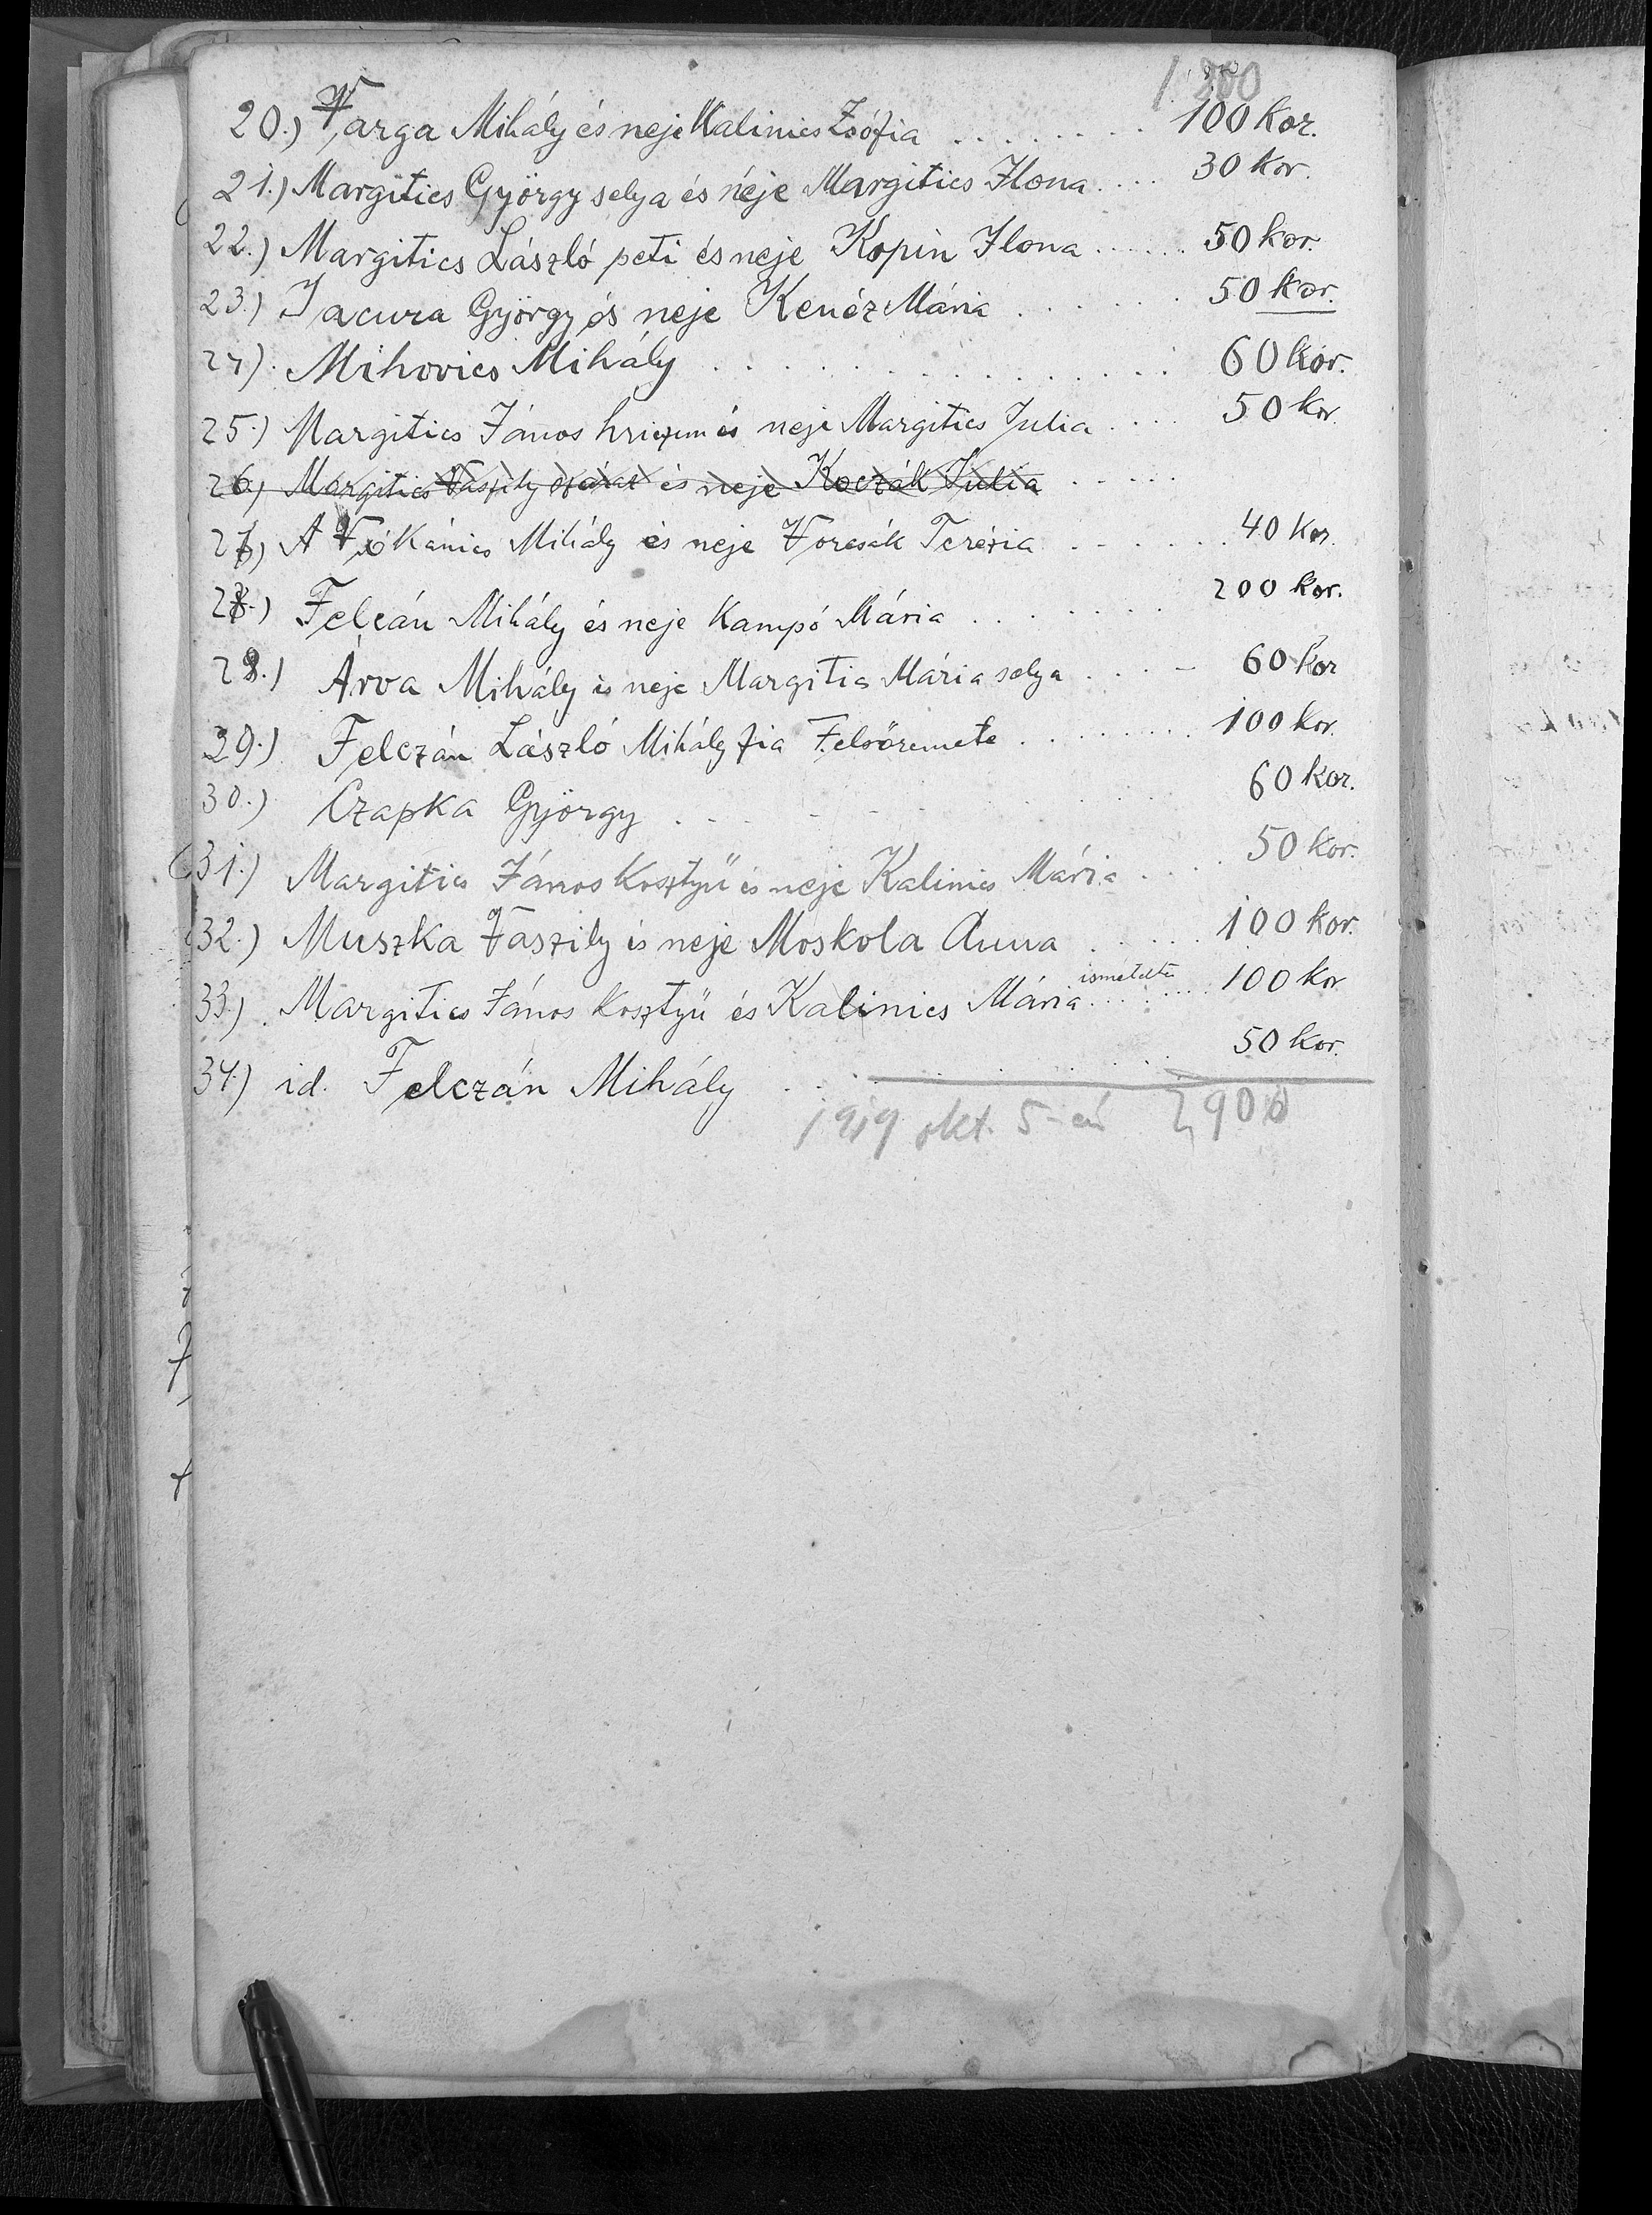 1800
20.) Varga Mihály és neje Kalinics Zsófia ........ 100 kor.
21.) Margitics György selya és neje Margitics Ilona .... 30 kor.
22.) Margitics László peti és neje Kopin Ilona ..... 50 kor.
23.) Jacura György és neje Kenéz Mária ...... 50 kor.
24). Mihovics Mihály ............ 60 kor.
25.) Margitics János hriczun és neje Margitics Julia .... 50 kor.
26.) Margitics Vaszily és neje Koczák Julia .....
27.) Mihály és neje Vorcsák Terézia ....... 40 kor.
28.) Felcán Mihály és neje Kampó Mária ....... 200 kor.
28.) Árva Mihály és neje Margitics Mária selya .... 60 kor
29.) Felczán László Mihály fia Felsőremete ......... 100 kor.
30.) Czapka György ........ 60 kor.
31.) Margitics János Kosztyü és neje Kalinics Mária .... 50 kor.
32.) Muszka Vaszily és neje Moskola Anna ...... 100 kor.
33.) Margitics János Kosztyü és Kalinics Mária ismételten ...... 100 kor
34.) id. Felczán Mihály ........ 50 kor.
1919 okt. 5-én 2900